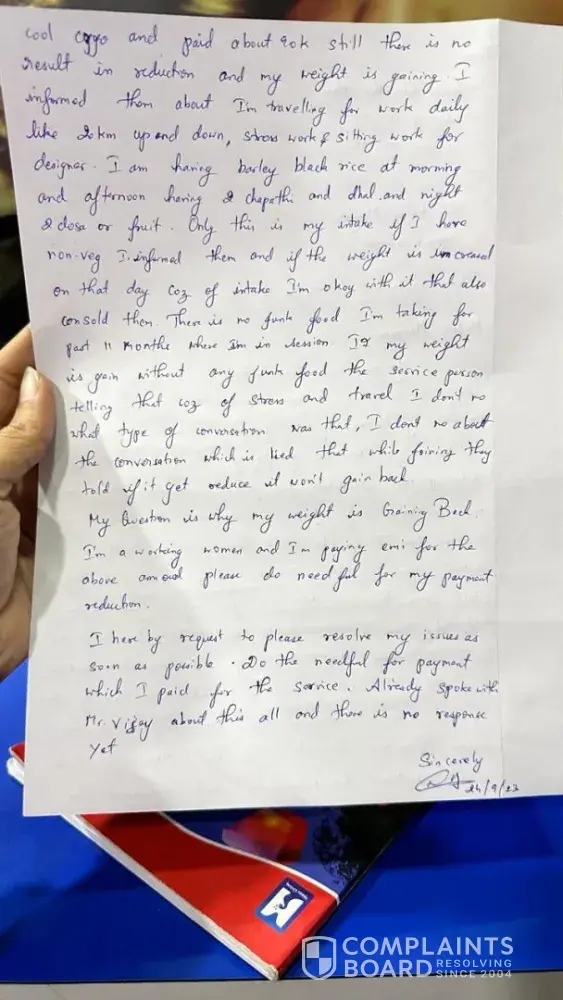 cool cryo and paid about 90k still there is no
result in reduction and my weight is gaining. I
informed them about I'm travelling for work daily
like 20km up and down, stress work & sitting work for
designer. I am having barley black rice at morning
and afternoon having 2 chapathi and dhal. and night
2 dosa or fruit. Only this is my intake if I have
non-veg I informed them and if the weight is increased
on that day coz of intake I'm okay with it that also
consold them. There is no junk food I'm taking for
past 11 months where I'm in session. If my weight
is gain without any junk food the service person
telling that coz of stress and travel I don't no
what type of conversation was that, I dont no about
the conversation which is lied that while joining they
told if it get reduce it won't gain back.
My Question is why my weight is Gaining Back.
I'm a working women and I'm paying emi for the
above amount please do needful for my payment
reduction.
I here by request to please resolve my issues as
soon as possible. Do the needful for payment
which I paid for the service. Already spoke with
Mr. Vijay about this all and there is no response
yet
Sincerely
24/9/23
COMPLAINTS
BOARD RESOLVING
SINCE 2004